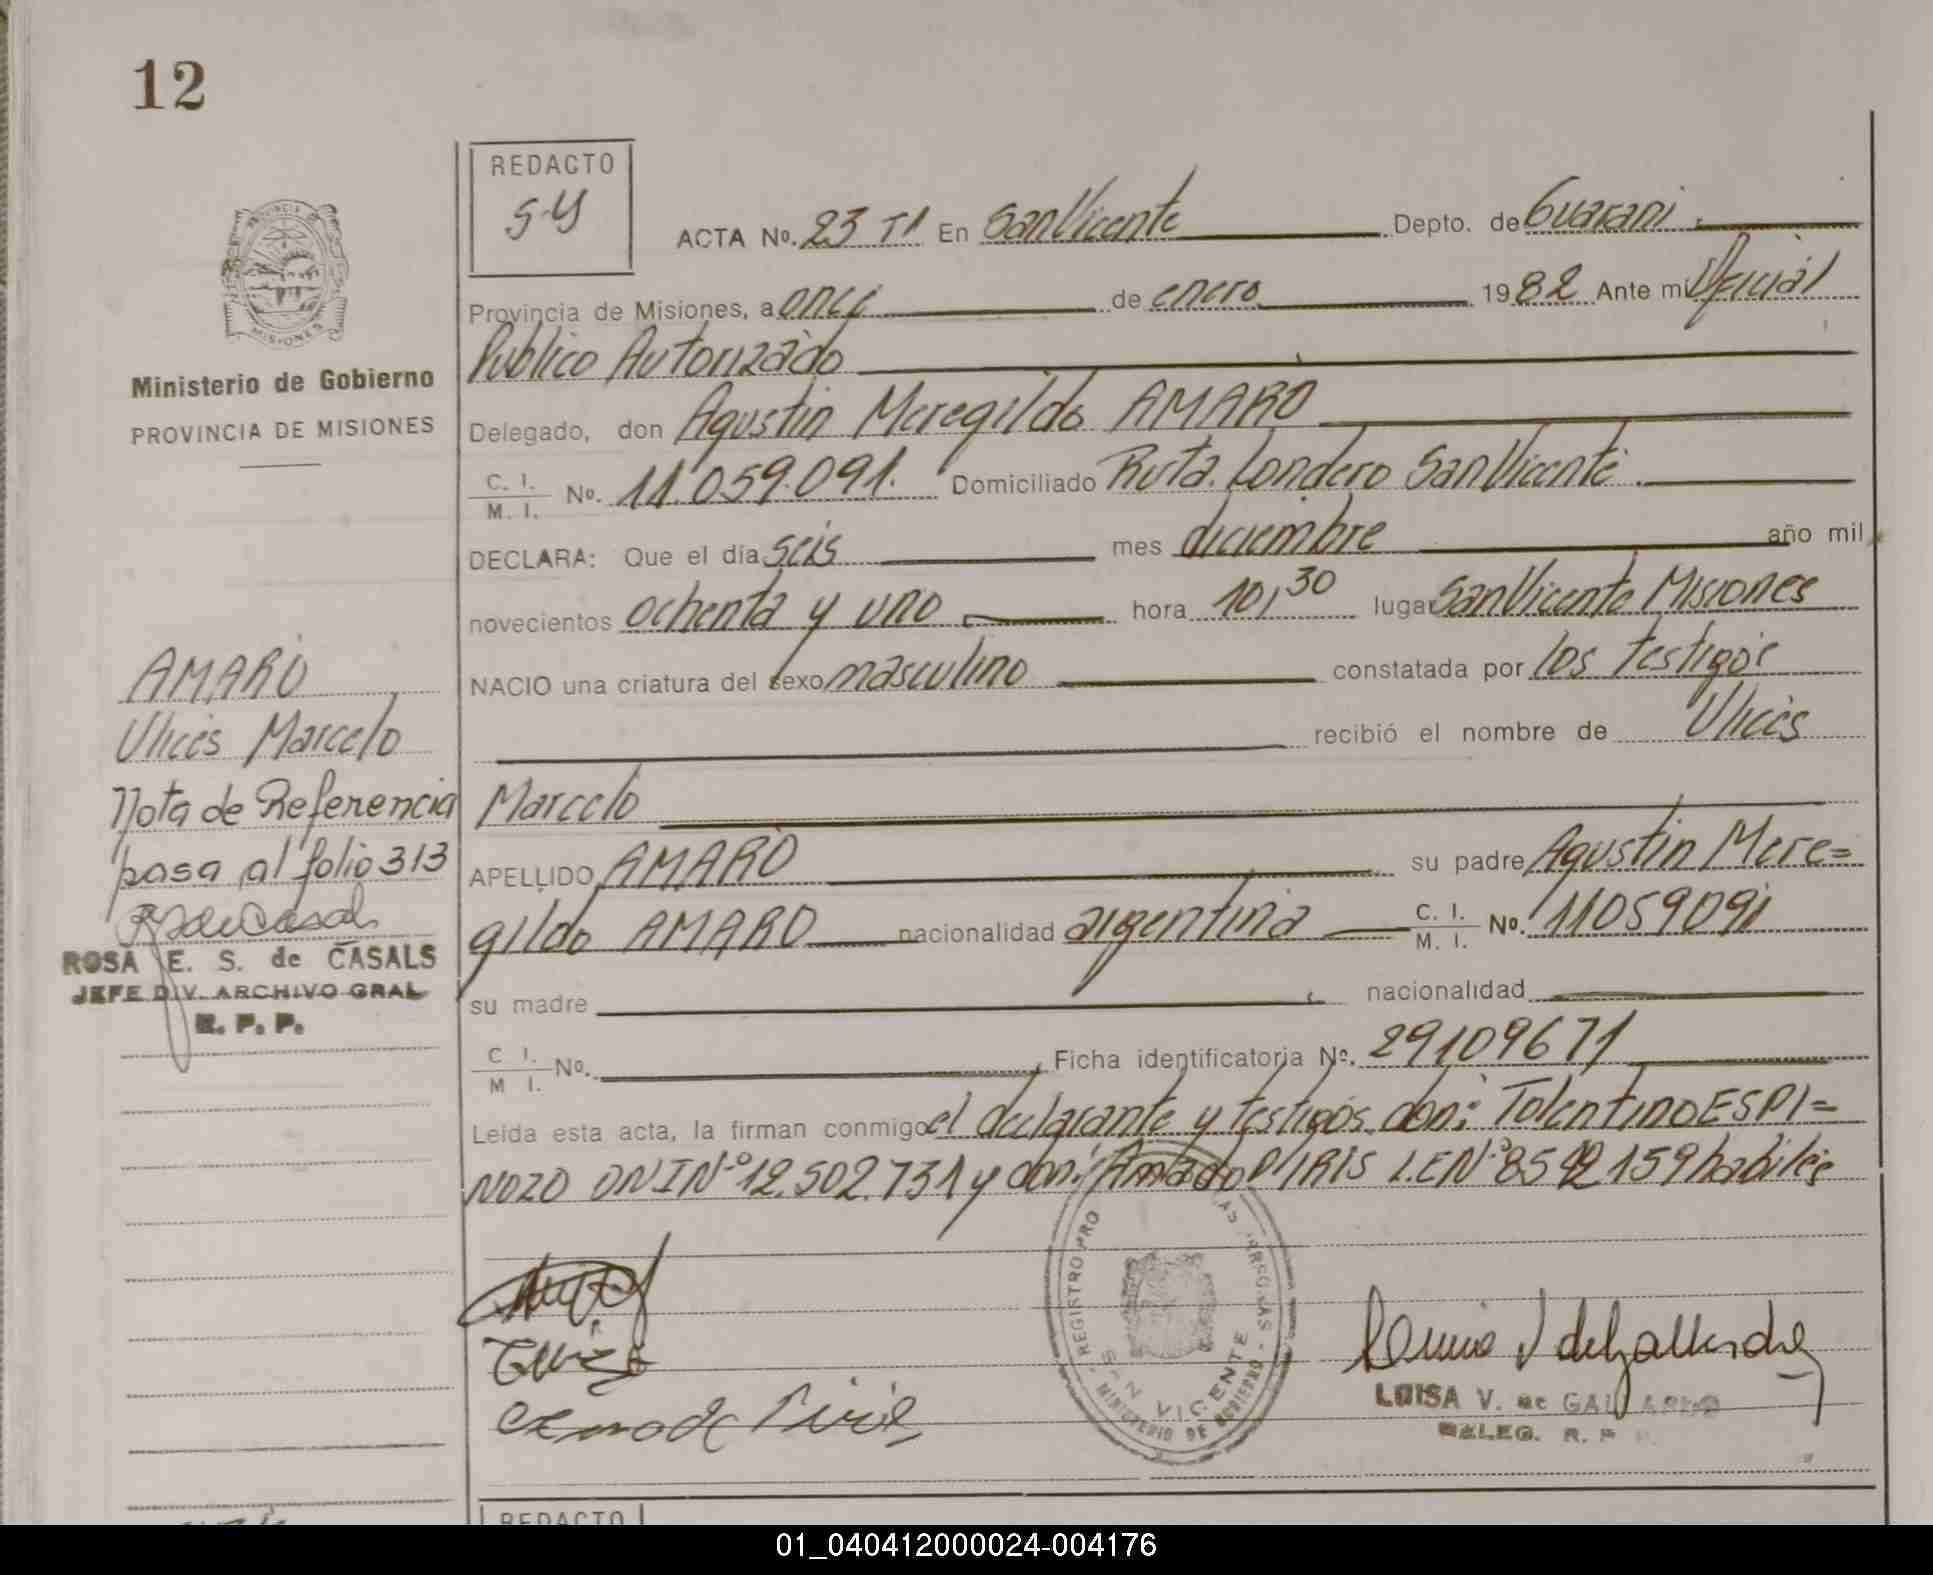 12
REDACTO
S-Y
ACTA No. 23 T1 En San Vicente Depto. de Guarani
Provincia de Misiones, a once de enero 1982 Ante mi Oficial
Publico Autorizado
Delegado, don Agustin Meregildo AMARO
C. I.
M. I. No. 11.059.091. Domiciliado Ruta. Londero San Vicente.
DECLARA: Que el día seis mes diciembre año mil
novecientos ochenta y uno hora 10,30 lugar San Vicente Misiones
NACIO una criatura del sexo masculino constatada por los testigos
recibió el nombre de Ulices
Marcelo
APELLIDO AMARO su padre Agustin Mere=
gildo AMARO nacionalidad argentina C. I.
M. I. No. 11059091
su madre nacionalidad
C I.
M I. No. Ficha identificatoria No. 29109671
Leída esta acta, la firman conmigo el declarante y testigos don: Tolentino ESPI=
NOZO DNI Nº 12.502.731 y don: Amado PIRIS L.E Nº 8592159 habiles
Ministerio de Gobierno
PROVINCIA DE MISIONES
AMARO
Ulices Marcelo
Nota de Referencia
pasa al folio 313
ROSA E. S. de CASALS
JEFE DIV. ARCHIVO GRAL
R. P. P.
SAN VICENTE
MINISTERIO DE GOBIERNO
LUISA V. de GALLARDO
DELEG. R. P.
REDACTO
01_040412000024-004176